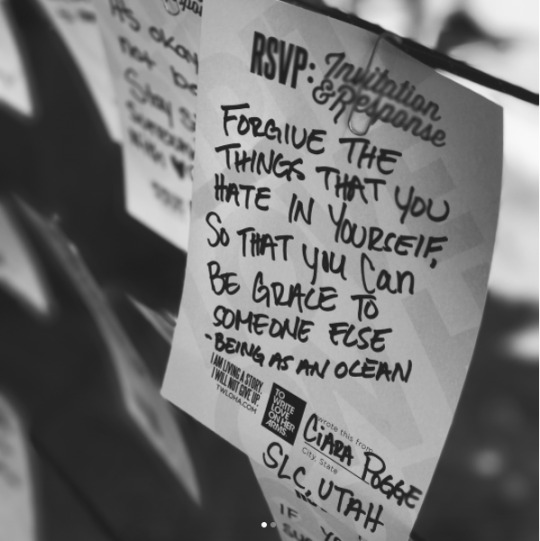 It's okay
not
Stay
RSVP: Invitation
& Response
FORGIVE THE
THINGS THAT YOU
HATE IN YOURSELF,
So THAT you Can
BE GRACE TO
SOMEONE ELSE
- BEING AS AN OCEAN
I AM LIVING A STORY.
I WILL NOT GIVE UP.
TWLOHA.COM
TO
WRITE
LOVE
ON HER
ARMS.
wrote this from
CIARA POGGE
City, State
SLC, UTAH
IF